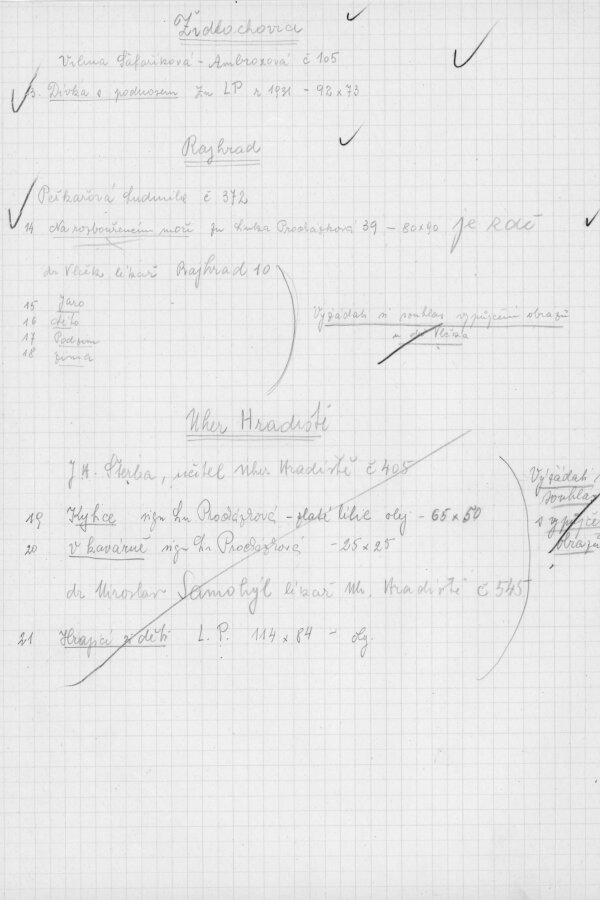 Židlochovice
Vilma Šafaříková - Ambrozová č 105
13. Dívka s podnosem zn LP r 1931 - 92 x 73
Rajhrad
Pekařová Ludmila č 372
14 Na rozbouřeném moři zn Linka Procházková 39 - 80x90 je zde
dr Vlček lékař Rajhrad 10
15 Jaro
16 Léto
17 Podzim
18 zima
Vyžádati si souhlas vypůjčení obrazů
u dr Vlčka
Uher Hradiště
J. A. Šterba, učitel Uher Hradiště č 405
19 Kytice sign Ln Procházková - zlaté lilie olej - 65 x 50
20 V kavárně sign Ln Procházková - 25 x 25
dr Miroslav Samohýl lékař Uh. Hradiště č 545
21 Hrající si děti L. P. 114 x 84 - olej.
Vyžádati
souhlas
s vypůjče
obrazů